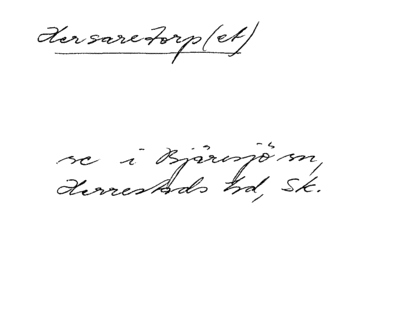 Hersaretorp(et)
se i Bjäresjö sn,
Herrestads hd, Sk.